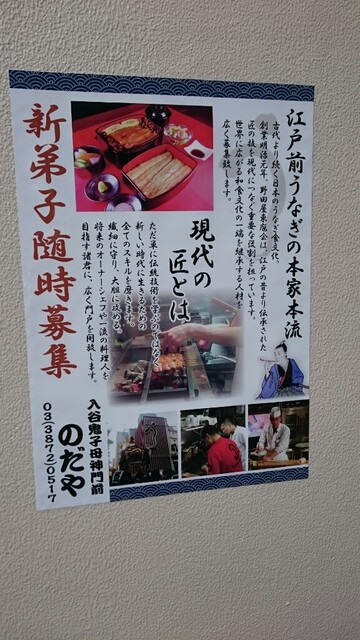 江戸前うなぎの本家本流
古代より続く日本のうなぎ食文化、
創業明治元年、野田屋東庖会は、江戸の昔より伝承された
匠の技を現代につなぐ重要な役割を担っています。
世界に広がる和食文化の一端を担する人材を
広く募集致します。
現代の
匠とは
ただ単に伝統技術を学ぶのではなく、
新しい時代に生きるための
全てのスキルを磨きます。
繊細に守り、大胆に攻める。
将来のオーナーシェフや一流の料理人を
目指す諸君に、広く門戸を開放します。
新弟子随時募集
入谷鬼子母神門前
のだや
03(3872)0517